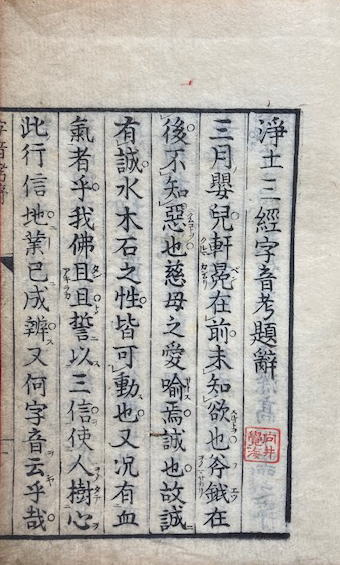 淨土三經字音考題辭
三月嬰兒軒冕在前未知欲也斧鉞在
後不知惡也慈母之愛喻焉誠也故誠
有誠水木石之性皆可動也又況有血
氣者乎我佛且且誓以三信使人樹心
此行信地業已成辨又何字音云乎哉